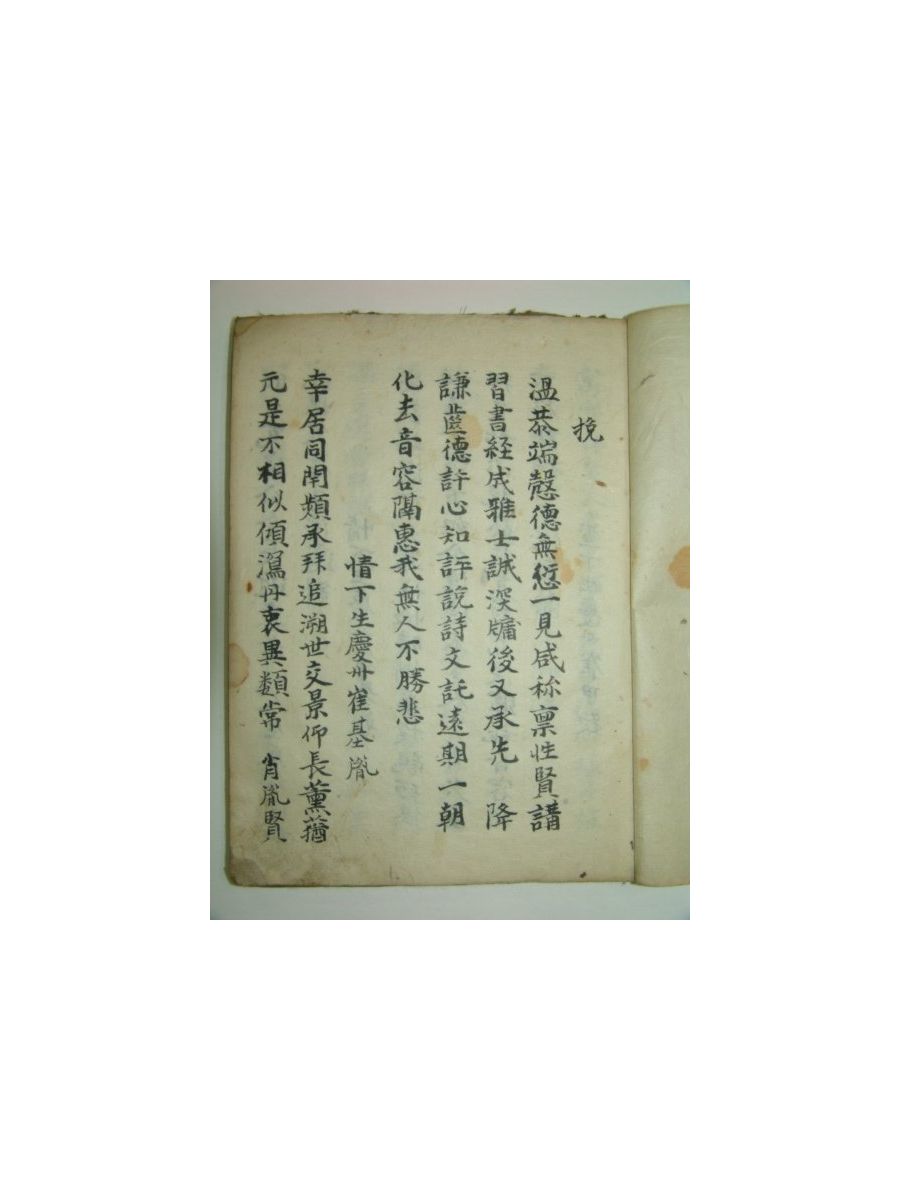 挽
温恭端慤德無愆一見咸称禀性賢講
習書経成雅士誠深牖後又承先 降
謙齒德許心知評說詩文託遠期一朝
化去音容隔惠我無人不勝悲
情下生慶州崔基胤
幸居同閈頻承拜追溯世交景仰長薰蕕
元是不相似傾瀉丹衷異類常 肖胤賢